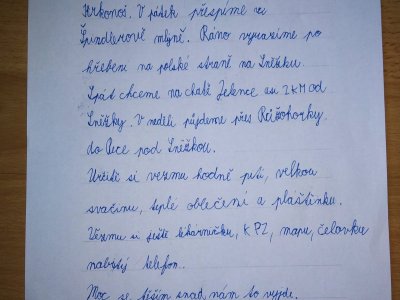 Krkonoš. V pátek přespíme ve
Špindlerově mlýně. Ráno vyrazíme po
hřebeni na polské straně na Sněžku.
Spát chceme na chatě Jelence asi 2 KM od
Sněžky. V neděli půjdeme přes Růžohorky
do Pece pod Sněžkou.
Určitě si vezmu hodně pití, velkou
svačinu, teplé oblečení a pláštěnku.
Vezmu si ještě lékárničku, KPZ, mapu, čelovku
nabitý telefon.
Moc se těším snad nám to vyjde.